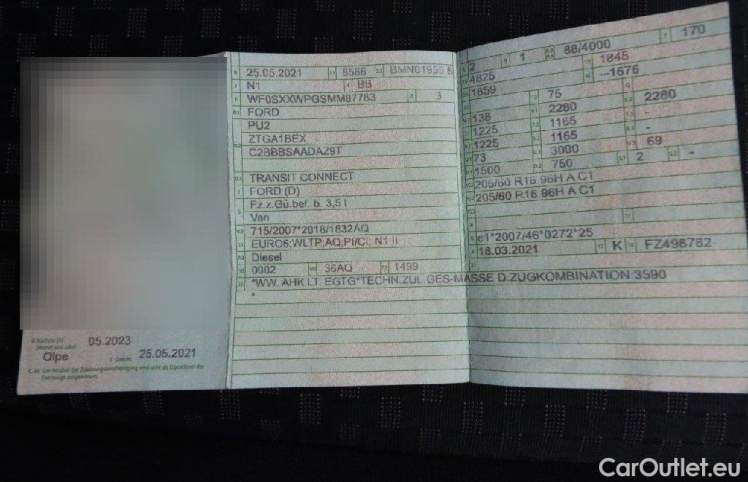 05.2023
Olpe
25.05.2021
25.05.2021 8566
N1 BB
WF0SXXWPGSMM87783 3
FORD
PU2
ZTGA1BEX
C2BBBSAADAZ9T
TRANSIT CONNECT
FORD (D)
Fz.z.Gü.bef. b. 3,5 t
Van
715/2007*2018/1832AQ
EURO6;WLTP;AQ;PI/CI; N1 II
Diesel
0002 36AQ 1499
*WW. AHK LT. EGTG*TECHN.ZUL.GES-MASSE D.ZUGKOMBINATION 3590
*
2 1 88/4000 170
4825 1845
1859 --1876
75
138 2280 2280
1225 1165 -
1225 1165 -
73 3000 69
1500 750 2 -
205/60 R16 96H A C1
205/60 R16 96H A C1
e1*2007/46*0272*25
18.03.2021 K FZ498762
CarOutlet.eu